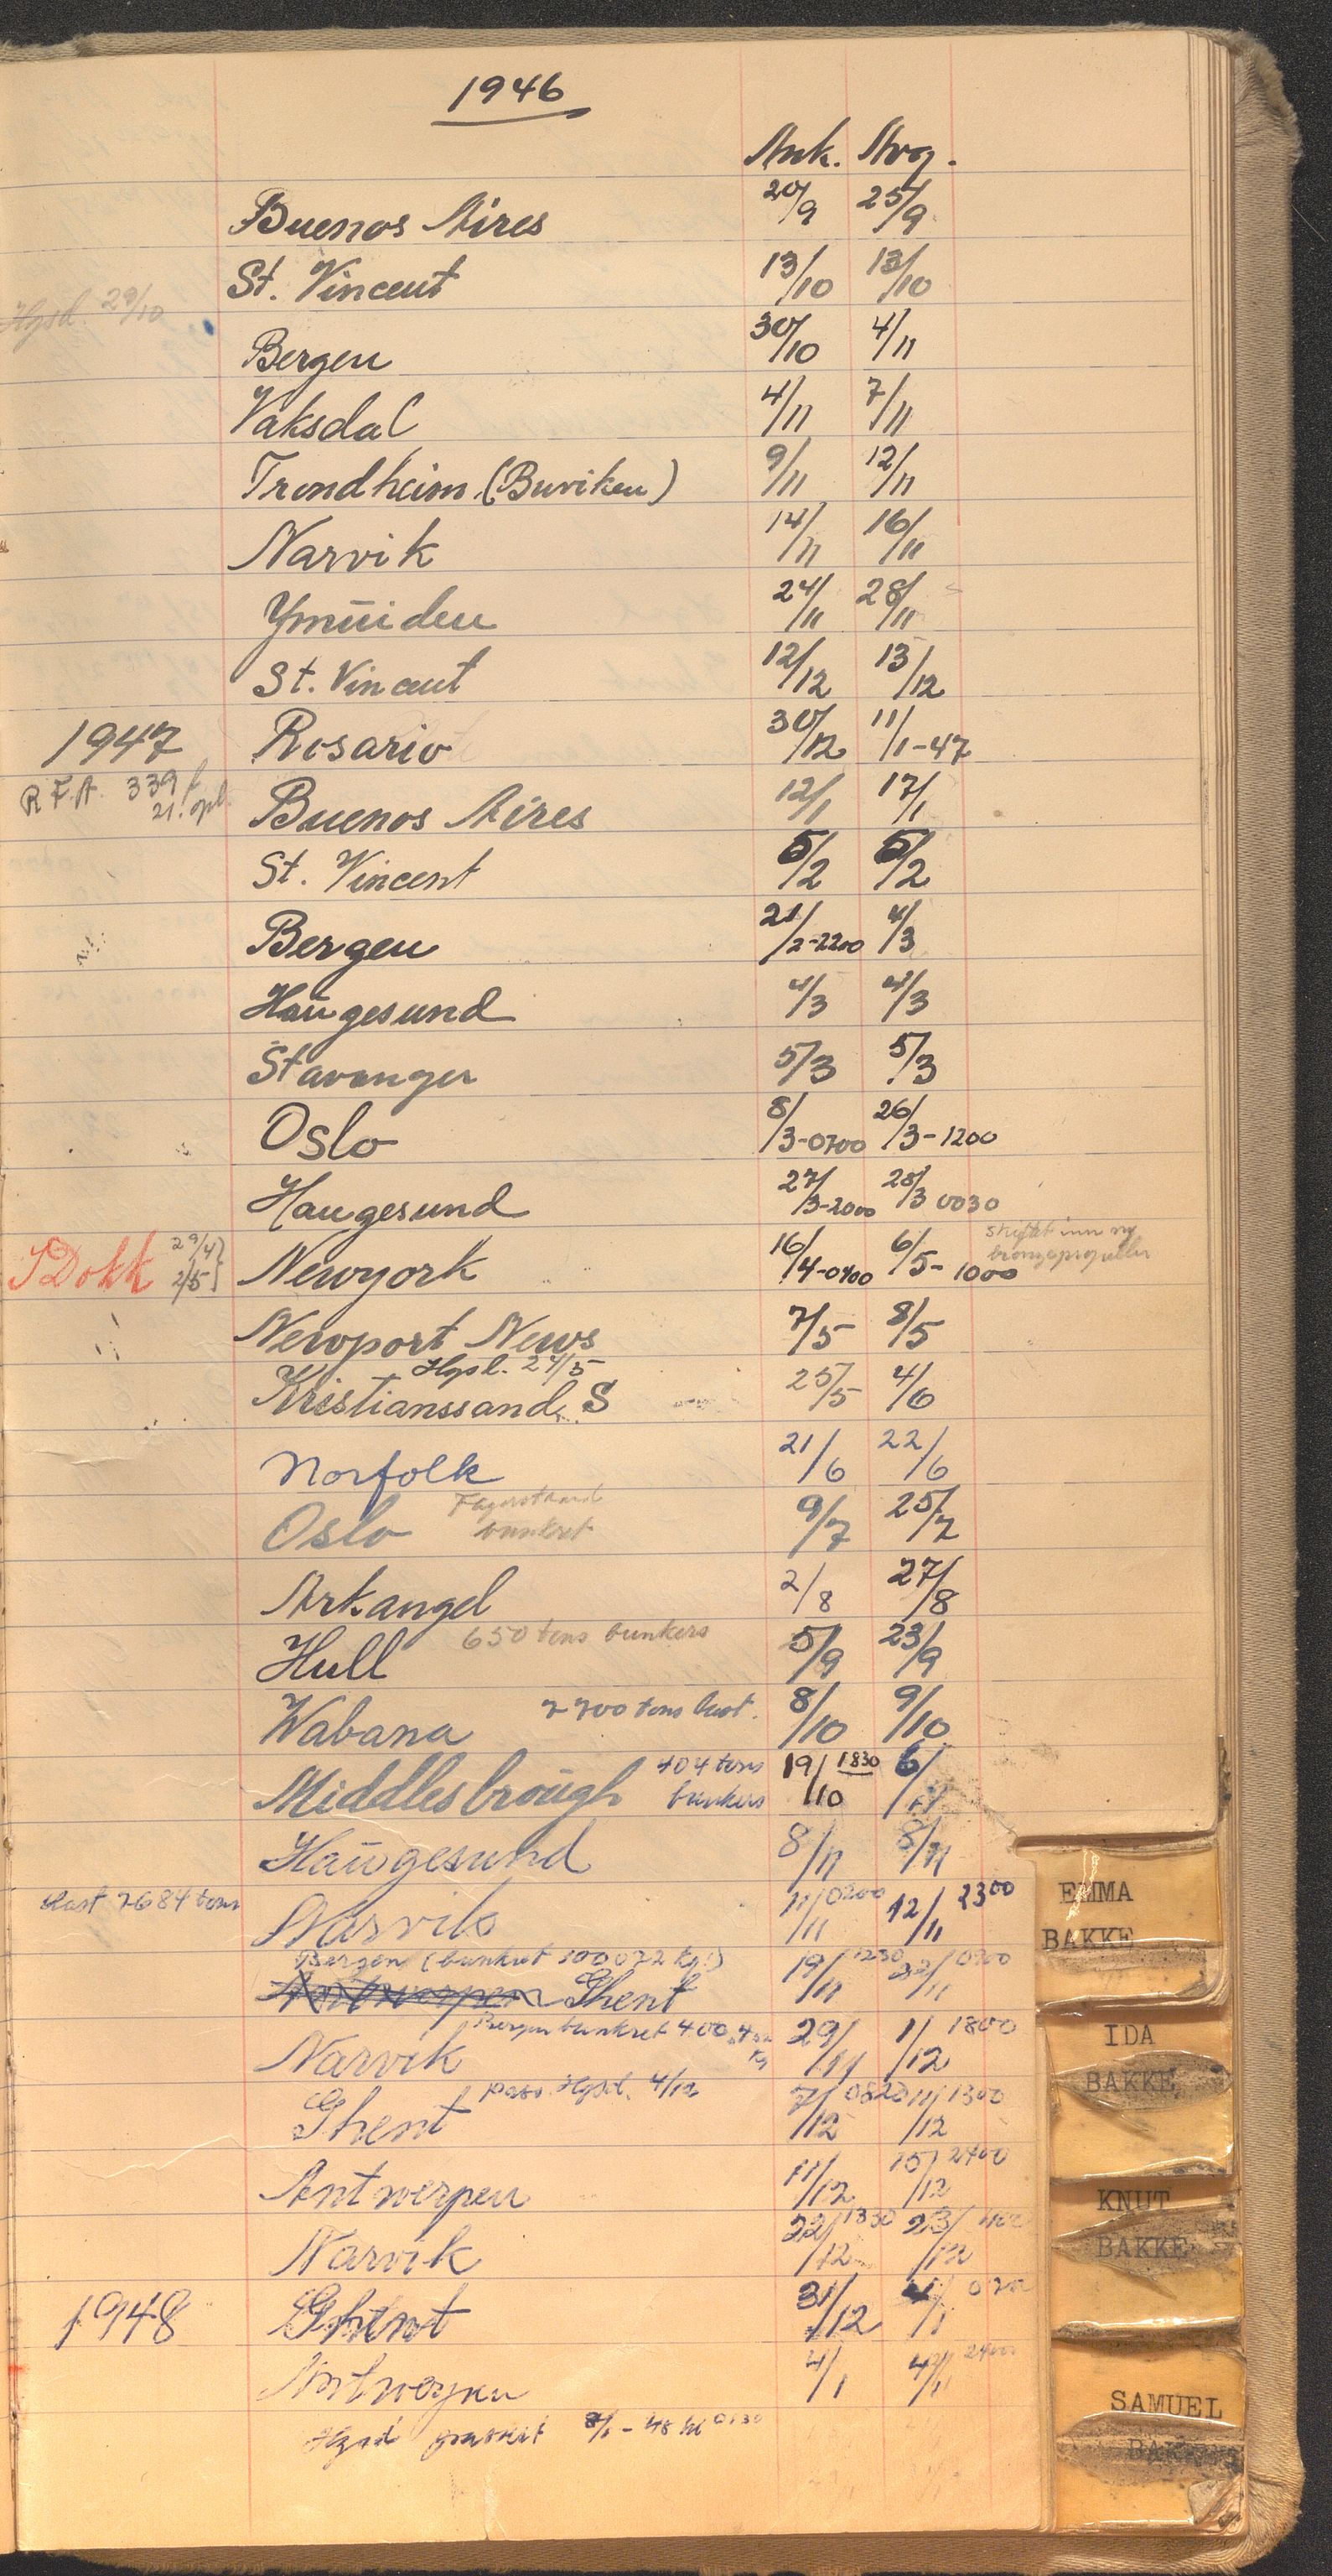 1946
Ank. Avg.
Buenos Aires 20/9 25/9
St. Vincent 13/10 13/10
Hgsd. 29/10
Bergen 30/10 4/11
Vaksdal 4/11 7/11
Trondheim (Buviken) 9/11 12/11
Narvik 14/11 16/11
Ymüiden 24/11 28/11
St. Vincent 12/12 13/12
1947 Rosario 30/12 11/1-47
R.F.A. 339 f
21. opl
Buenos Aires 12/1 17/1
St. Vincent 5/2 5/2
Bergen 21/2-2200 4/3
Haŭgesund 4/3 4/3
Stavanger 5/3 5/3
Oslo 8/3-0700 26/3-1200
Haugesund 27/3-2000 28/3 0030
Skiftet inn ny
bronzepropeller
I Dokk 29/4 2/5 Newyork 16/4-0700 6/5-1000
Newport News 7/5 8/5
Hgsd. 24/5
Kristianssand S 25/5 4/6
Norfolk 21/6 22/6
Fagerstrand
Oslo bunkret 9/7 25/7
Arkangel 2/8 27/8
650 tons bunkers
Hull 5/9 23/9
Wabana 7700 tons last. 8/10 9/10
Middlesbroŭgh 404 tons bunkers 19/10 1830 6/11
Haŭgesund 8/11 8/11
Last 7684 tons Narvik 11/11 0200 12/11 2300
Bergen (bunkret 100072 kg.)
Antwerpen Ghent 19/11 1230 22/11 0700
Bergen bunkret 400.4 kg
Narvik 29/11 1/12 1800
pass. Hgsd. 4/12
Ghent 7/12 0820 11/12 1300
Antwerpen 11/12 15/12 2400
Narvik 22/12 1330 23/12
1948 Ghent 31/12 4/1
Antwerpen 4/1 4/1 2400
Hgsd passert 8/1-48 kl 0130
EMMA
BAKKE
IDA
BAKKE
KNUT
BAKKE
SAMUEL
BAKKE